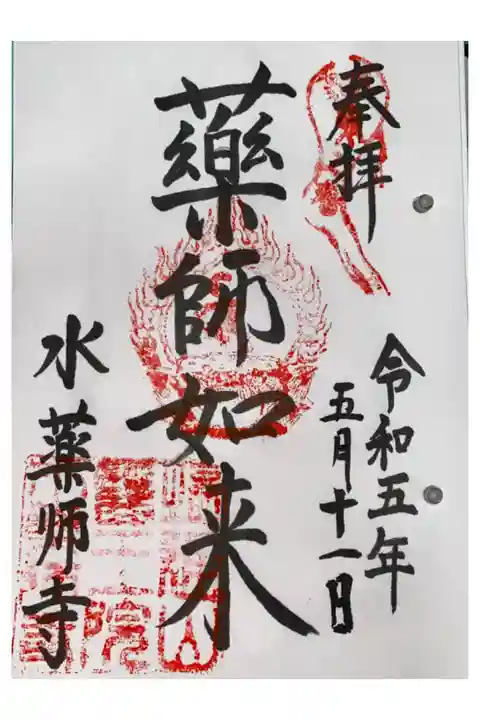 奉拝
令和五年
五月十一日
薬師如来
水薬师寺